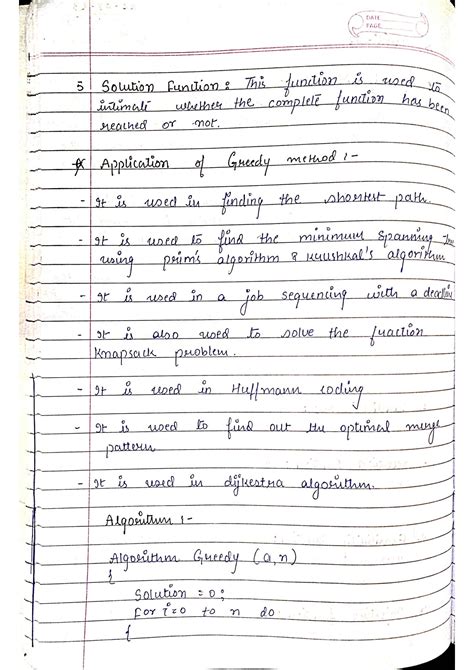 DATE
PAGE
5 Solution Function : This function is used to
intimate whether the complete function has been
reached or not.
* Application of Greedy method :-
- It is used in finding the shortest path.
- It is used to find the minimum spanning tree
using prim's algorithm & kruushkal's algorithm
- It is used in a job sequencing with a deadline
- It is also used to solve the fraction
Knapsack problem.
- It is used in Huffmann coding
- It is used to find out the optimal merge
pattern
- It is used in dijkestra algorithm.
Algorithm :-
Algorithm Greedy (a,n)
{
Solution = 0;
For i=0 to n do
{